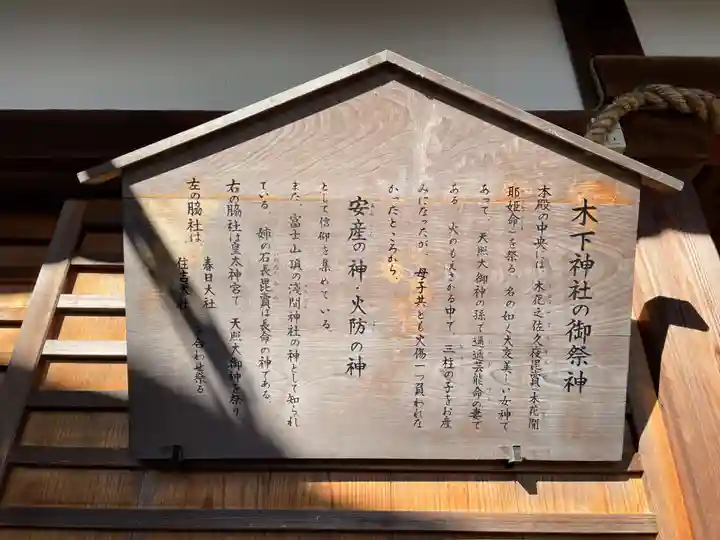 木下神社の御祭神
本殿の中央には、木花之佐久夜毘賣(木花開
耶姫命)を祭る。名の如く大変美しい女神で
あって、天照大御神の孫で邇邇芸能命の妻で
ある。火のもえさかる中で、三柱の子をお産
みになったが、母子共とも火傷一つ負われな
かったところから、
安産の神・火防の神
として信仰を集めている。
また、富士山頂の浅間神社の神として知られ
ている。姉の石長毘賣は長命の神である。
右の脇社は皇太神宮で 天照大御神を祭り
左の脇社は、春日大社
住吉大社
合わせ祭る